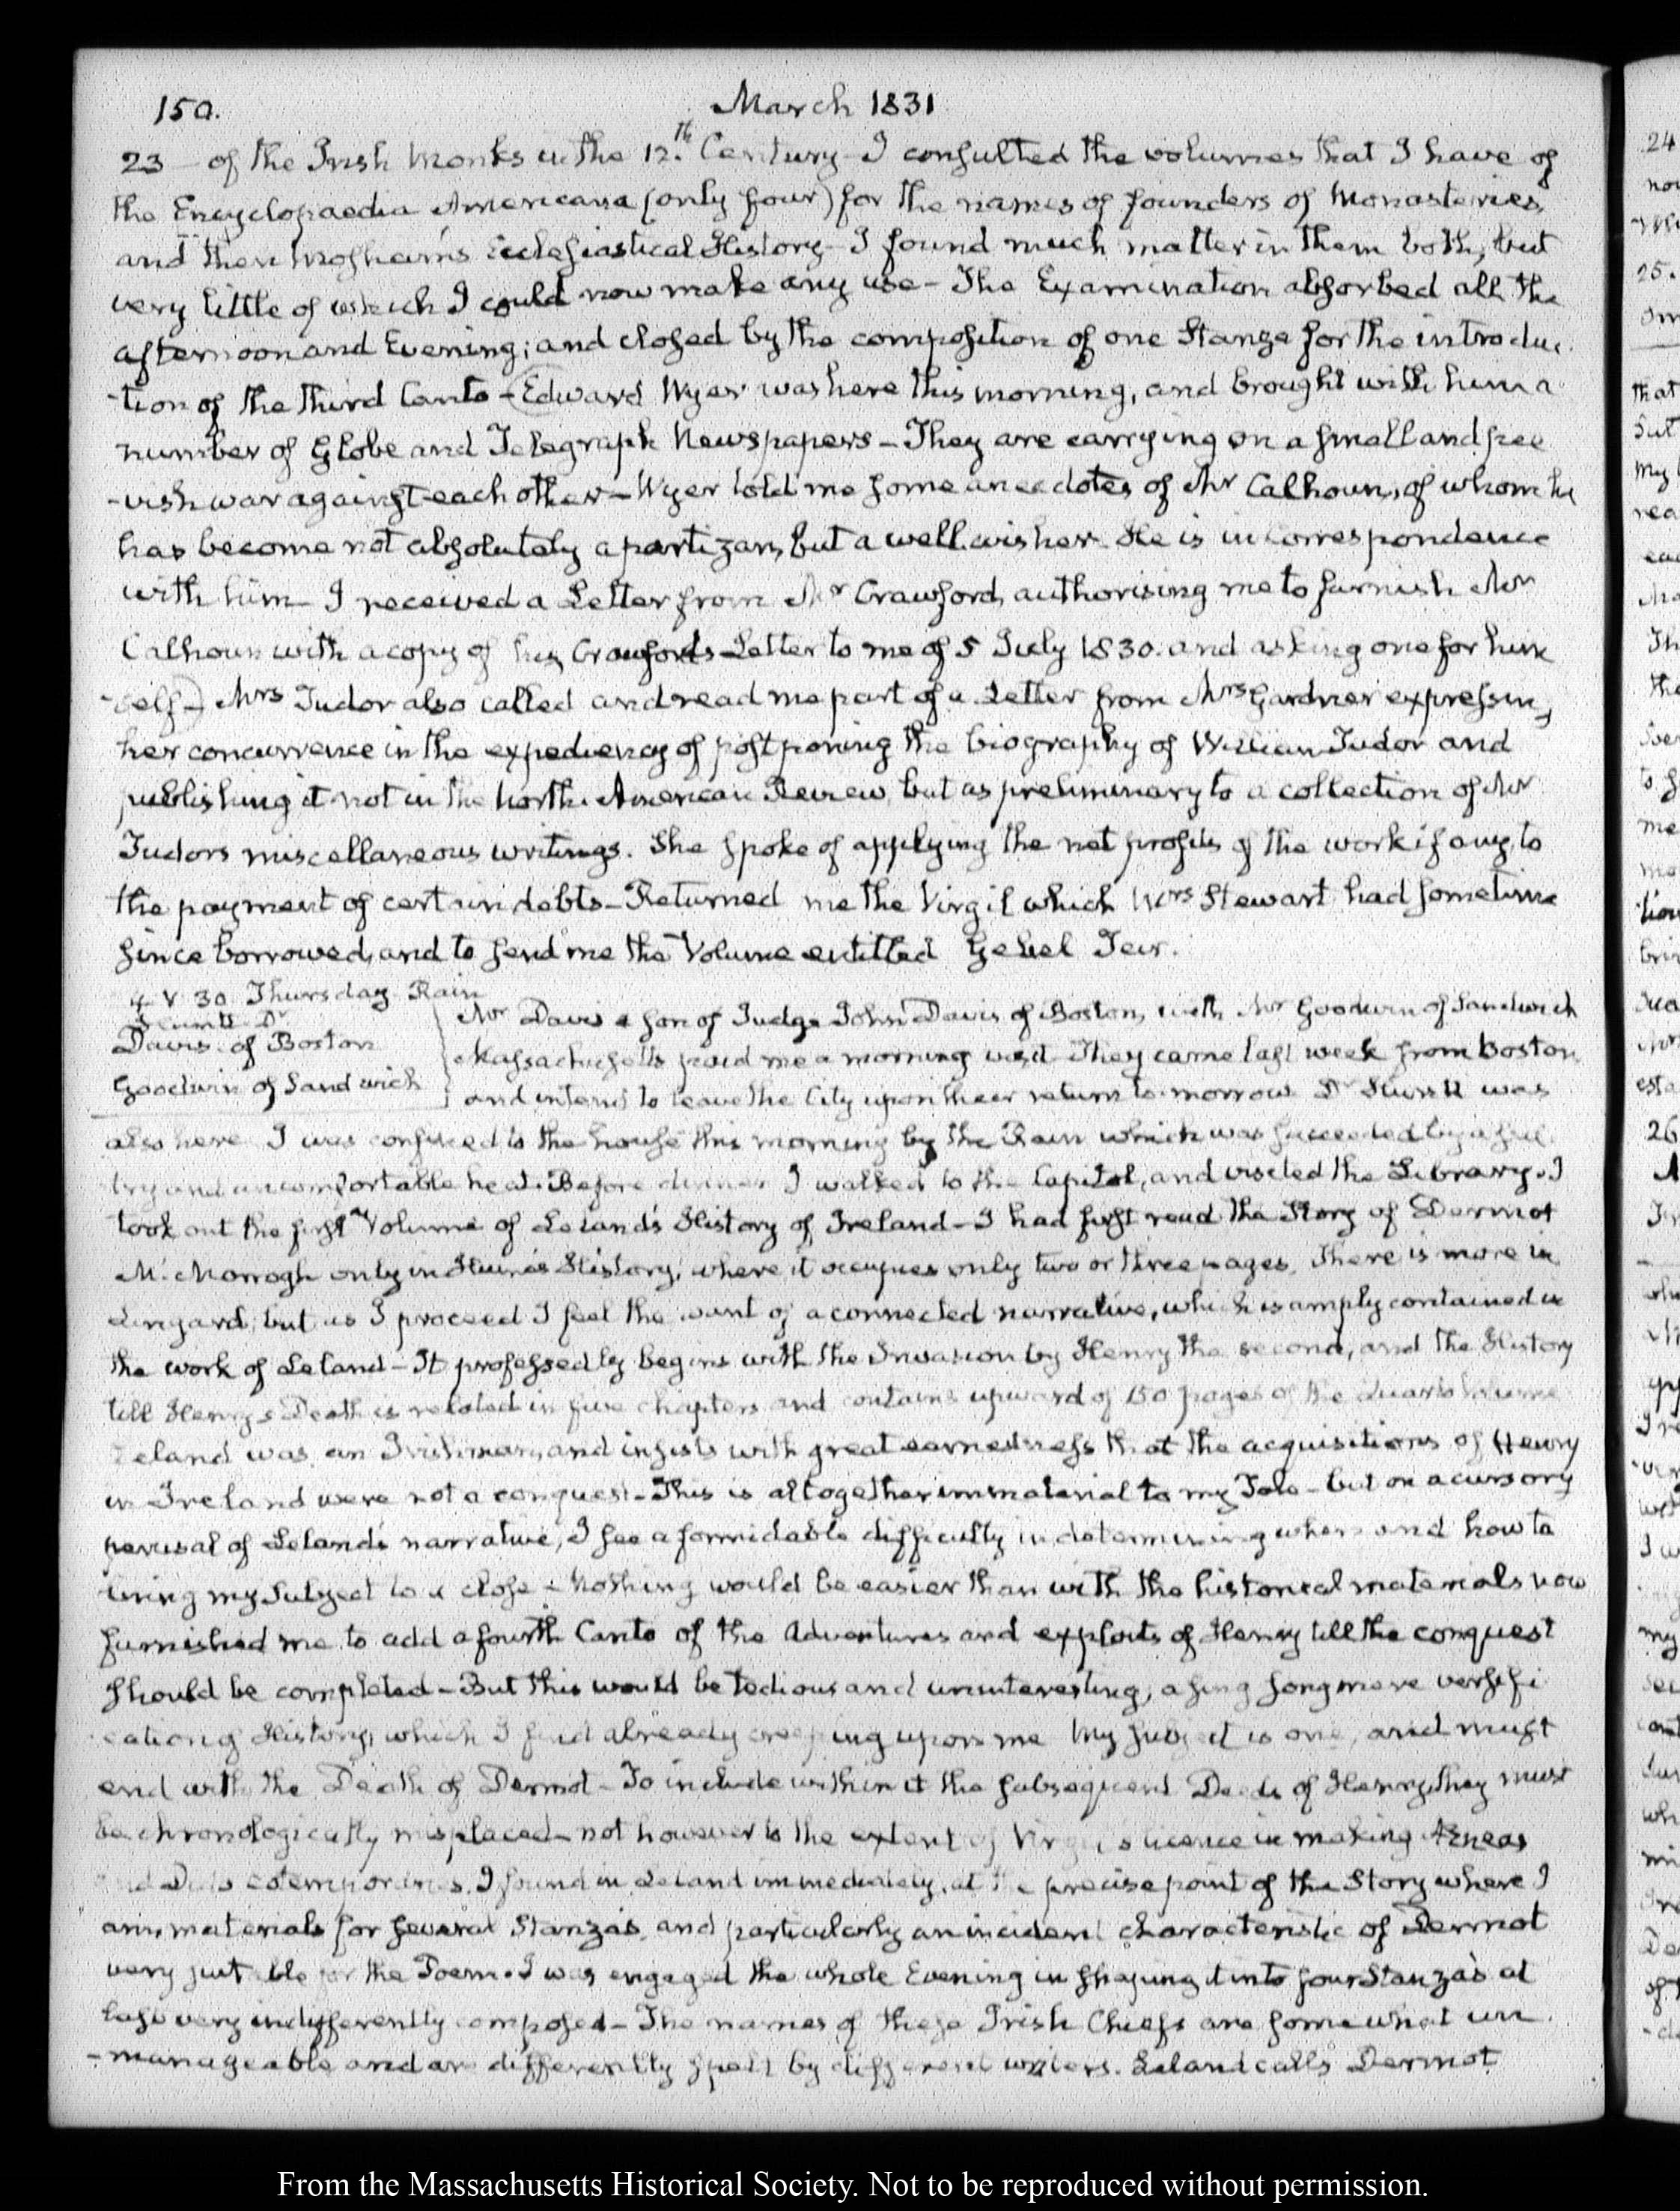 150.
March 1831
23 — of the Irish Monks in the 12.th Century — I consulted the volumes that I have of
the Encyclopaedia Americana (only four) for the names of founders of Monasteries,
and then Mosheim's Ecclesiastical History — I found much matter in them both, but
very little of which I could now make any use — The Examination absorbed all the
afternoon and Evening; and closed by the composition of one Stanza for the introduc
-tion of the third Canto — (Edward Wyer was here this morning, and brought with him a
number of Globe and Telegraph Newspapers — They are carrying on a small and pee
-vish war against each other — Wyer told me some anecdotes of Mr Calhoun, of whom he
has become not absolutely a partizan, but a well wisher. He is in correspondence
with him — I received a Letter from Mr Crawford, authorising me to furnish Mr
Calhoun with a copy of his, Crawford's Letter to me of 5 July 1830. and asking one for him
-self —) Mrs Tudor also called and read me part of a Letter from Mrs Gardner expressing
her concurrence in the expediency of postponing the biography of William Tudor and
publishing it not in the North American Review, but as preliminary to a collection of Mr
Tudors miscellaneous writings. She spoke of applying the net profits of the work if any, to
the payment of certain debts — Returned me the Virgil which Mrs Stewart had sometime
since borrowed, and to send me the Volume entitled Gebel Teir.
V 30 Thursday Rain
Dr
Davis of Boston
Goodwin of Sandwich
Mr Davis a son of Judge John Davis of Boston, with Mr Goodwin of Sandwich
Massachusetts paid me a morning visit. They came last week from Boston,
and intend to leave the City upon their return to-morrow. Dr Huntt was
also here. I was confined to the house this morning by the Rain which was succeeded by a sul
try and uncomfortable heat. Before dinner I walked to the Capitol, and visited the Library. I
took out the first Volume of Leland's History of Ireland — I had first read the Story of Dermot
McMorrogh only in Hume's History, where it occupies only two or three pages. There is more in
Lingard; but as I proceed I feel the want of a connected narrative, which is amply contained in
the work of Leland — It professedly begins with the Invasion by Henry the second, and the History
till Henry's Death is related in five chapters and contains upward of 150 pages of the Quarto Volume
Leland was an Irishman, and insists with great earnestness that the acquisitions of Henry
in Ireland were not a conquest — This is altogether immaterial to my Tale — but on a cursory
perusal of Leland's narrative, I see a formidable difficulty in determining where and how to
bring my Subject to a close — Nothing would be easier than with the historical materials now
furnished me to add a fourth Canto of the Adventures and exploits of Henry till the conquest
should be completed — But this would be tedious and uninteresting; a sing song mere versifi
cation of History, which I find already creeping upon me My subject is one, and must
end with the Death of Dermot — To include within it the subsequent Deeds of Henry, they must
be chronologically misplaced — not however to the extent of Virgil's licence in making Æneas
and Dido cotemporaries. I found in Leland immediately, at the precise point of the Story where I
am, materials for several Stanza's, and particularly an incident characteristic of Dermot
very suitable for the Poem. I was engaged the whole Evening in shaping it into four Stanza's at
last very indifferently composed — The names of these Irish Chiefs are somewhat un
-manageable and are differently spelt by different writers. Leland calls Dermot
24
25.
that
26
From the Massachusetts Historical Society. Not to be reproduced without permission.